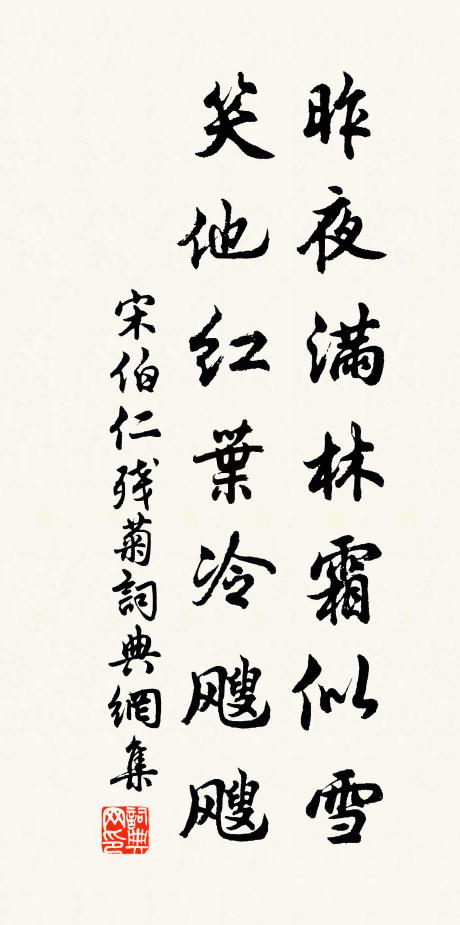 昨夜滿林霜似雪
笑他紅葉冷颼颼
宋伯仁殘菊詞典網集
詞典网印